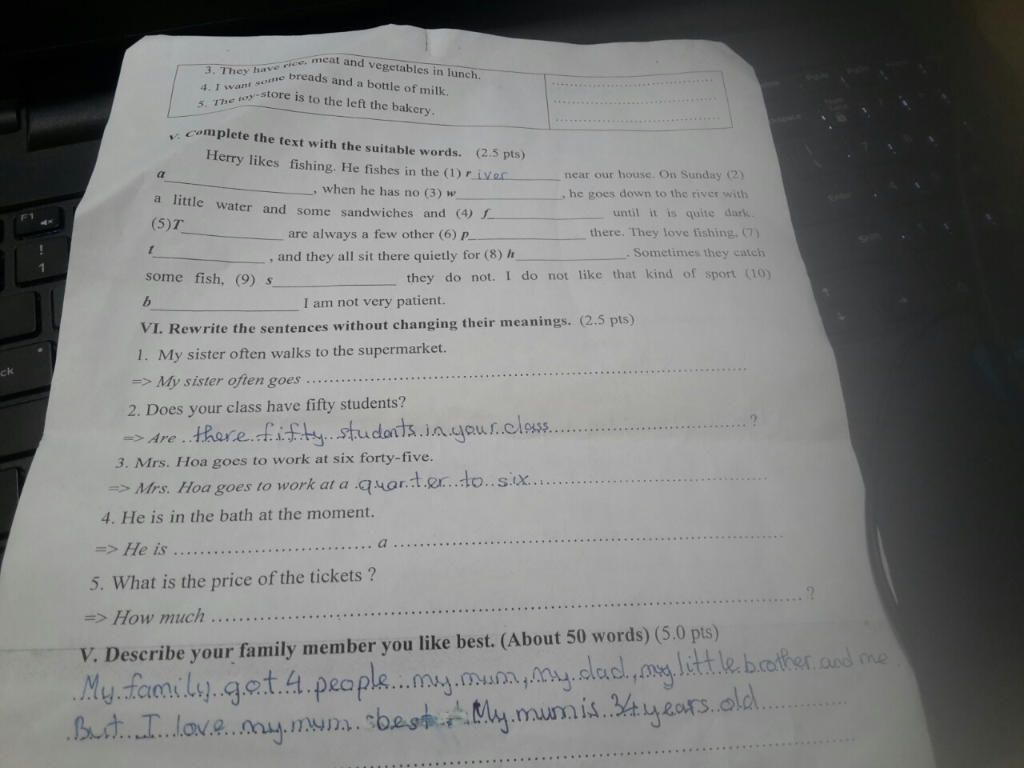 3. They have rice, meat and vegetables in lunch. ....................
4. I want some breads and a bottle of milk. ....................
5. The toy-store is to the left the bakery. ....................
V. Complete the text with the suitable words. (2.5 pts)
Herry likes fishing. He fishes in the (1) river________ near our house. On Sunday (2)
a____________, when he has no (3) w____________, he goes down to the river with
a little water and some sandwiches and (4) f____________ until it is quite dark.
(5)T____________ are always a few other (6) p____________ there. They love fishing, (7)
t____________, and they all sit there quietly for (8) h____________. Sometimes they catch
some fish, (9) s____________ they do not. I do not like that kind of sport (10)
b____________ I am not very patient.
VI. Rewrite the sentences without changing their meanings. (2.5 pts)
1. My sister often walks to the supermarket.
=> My sister often goes ....................
2. Does your class have fifty students?
=> Are there fifty students in your class ....................?
3. Mrs. Hoa goes to work at six forty-five.
=> Mrs. Hoa goes to work at a quarter to six ....................
4. He is in the bath at the moment.
=> He is .................... a ....................
5. What is the price of the tickets ?
=> How much ....................?
V. Describe your family member you like best. (About 50 words) (5.0 pts)
My family got 4 people... my mum, my dad, my little brother and me
But I love my mum best. My mum is 34 years old
F1
!
1
ck